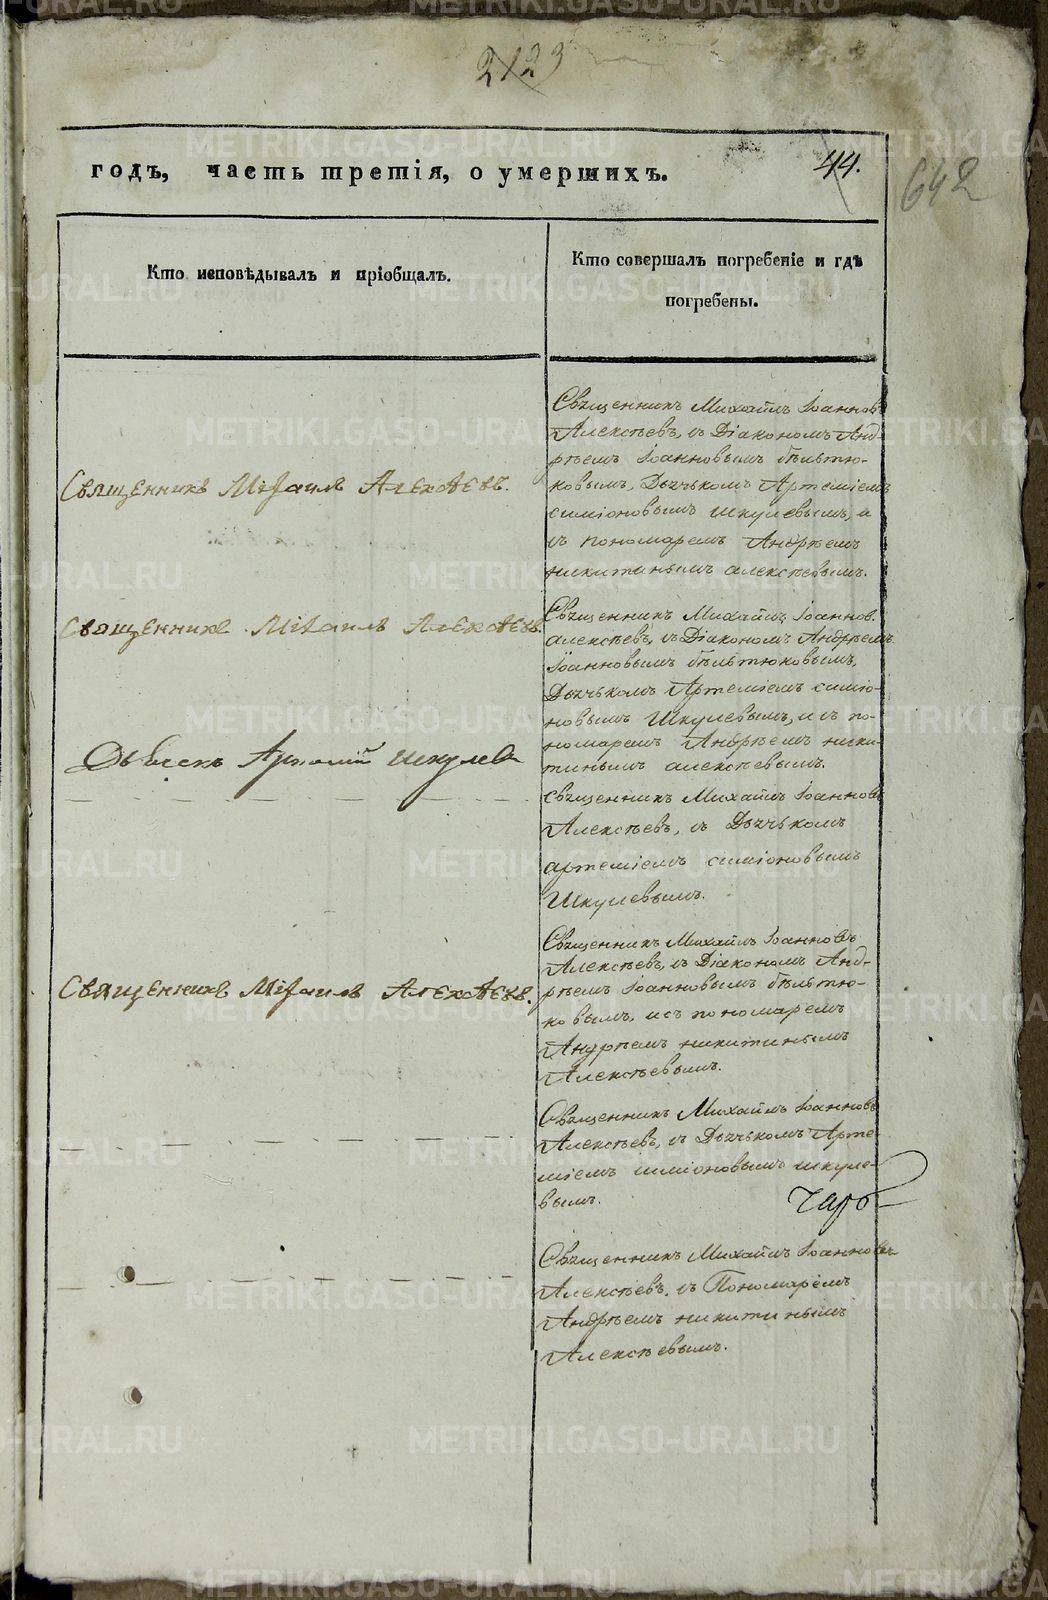 2123
годъ, часть третія, о умершихъ.
44.
642
Кто исповѣдывалъ и пріобщалъ.
Кто совершалъ погребеніе и гдѣ
погребены.
Священникъ Михаилъ Алексѣевъ.
Священникъ Михаилъ Іоанновъ
Алексѣевъ, съ Діакономъ Анд-
рѣемъ Іоанновымъ бѣльтю-
ковымъ, Дьячькомъ Артеміемъ
симіоновымъ шкулевымъ, и
съ пономаремъ Андрѣемъ
никитинымъ алексѣевымъ.
Священникъ Михаилъ Алексѣевъ.
Священникъ Михаилъ Іоаннов.
алексѣевъ, съ Діакономъ Андрѣемъ
Іоанновымъ бѣльтюковымъ,
Дьячькомъ Артеміемъ симіо-
новымъ Шкулевымъ, и съ по-
номаремъ Андрѣемъ ники-
тинымъ алексѣевымъ.
Шкулевъ
священникъ Михаилъ Іоанновъ
Алексѣевъ, съ Дьячькомъ
артеміемъ симіоновымъ
Шкулевымъ.
Священникъ Михаилъ Алексѣевъ.
Священникъ Михаилъ Іоанновъ
Алексѣевъ, съ Діакономъ Анд-
рѣемъ Іоанновымъ бѣльтю-
ковымъ, и съ пономаремъ
Андрѣемъ никитинымъ
Алексѣевымъ.
Священникъ Михаилъ Іоанновъ
Алексѣевъ, съ Дьячькомъ Арте-
міемъ симіоновымъ шкуле-
вымъ.
Священникъ Михаилъ Іоанновъ
Алексѣевъ, съ Пономаремъ
Андрѣемъ никитинымъ
Алексѣевымъ.
METRIKI.GASO-URAL.RU